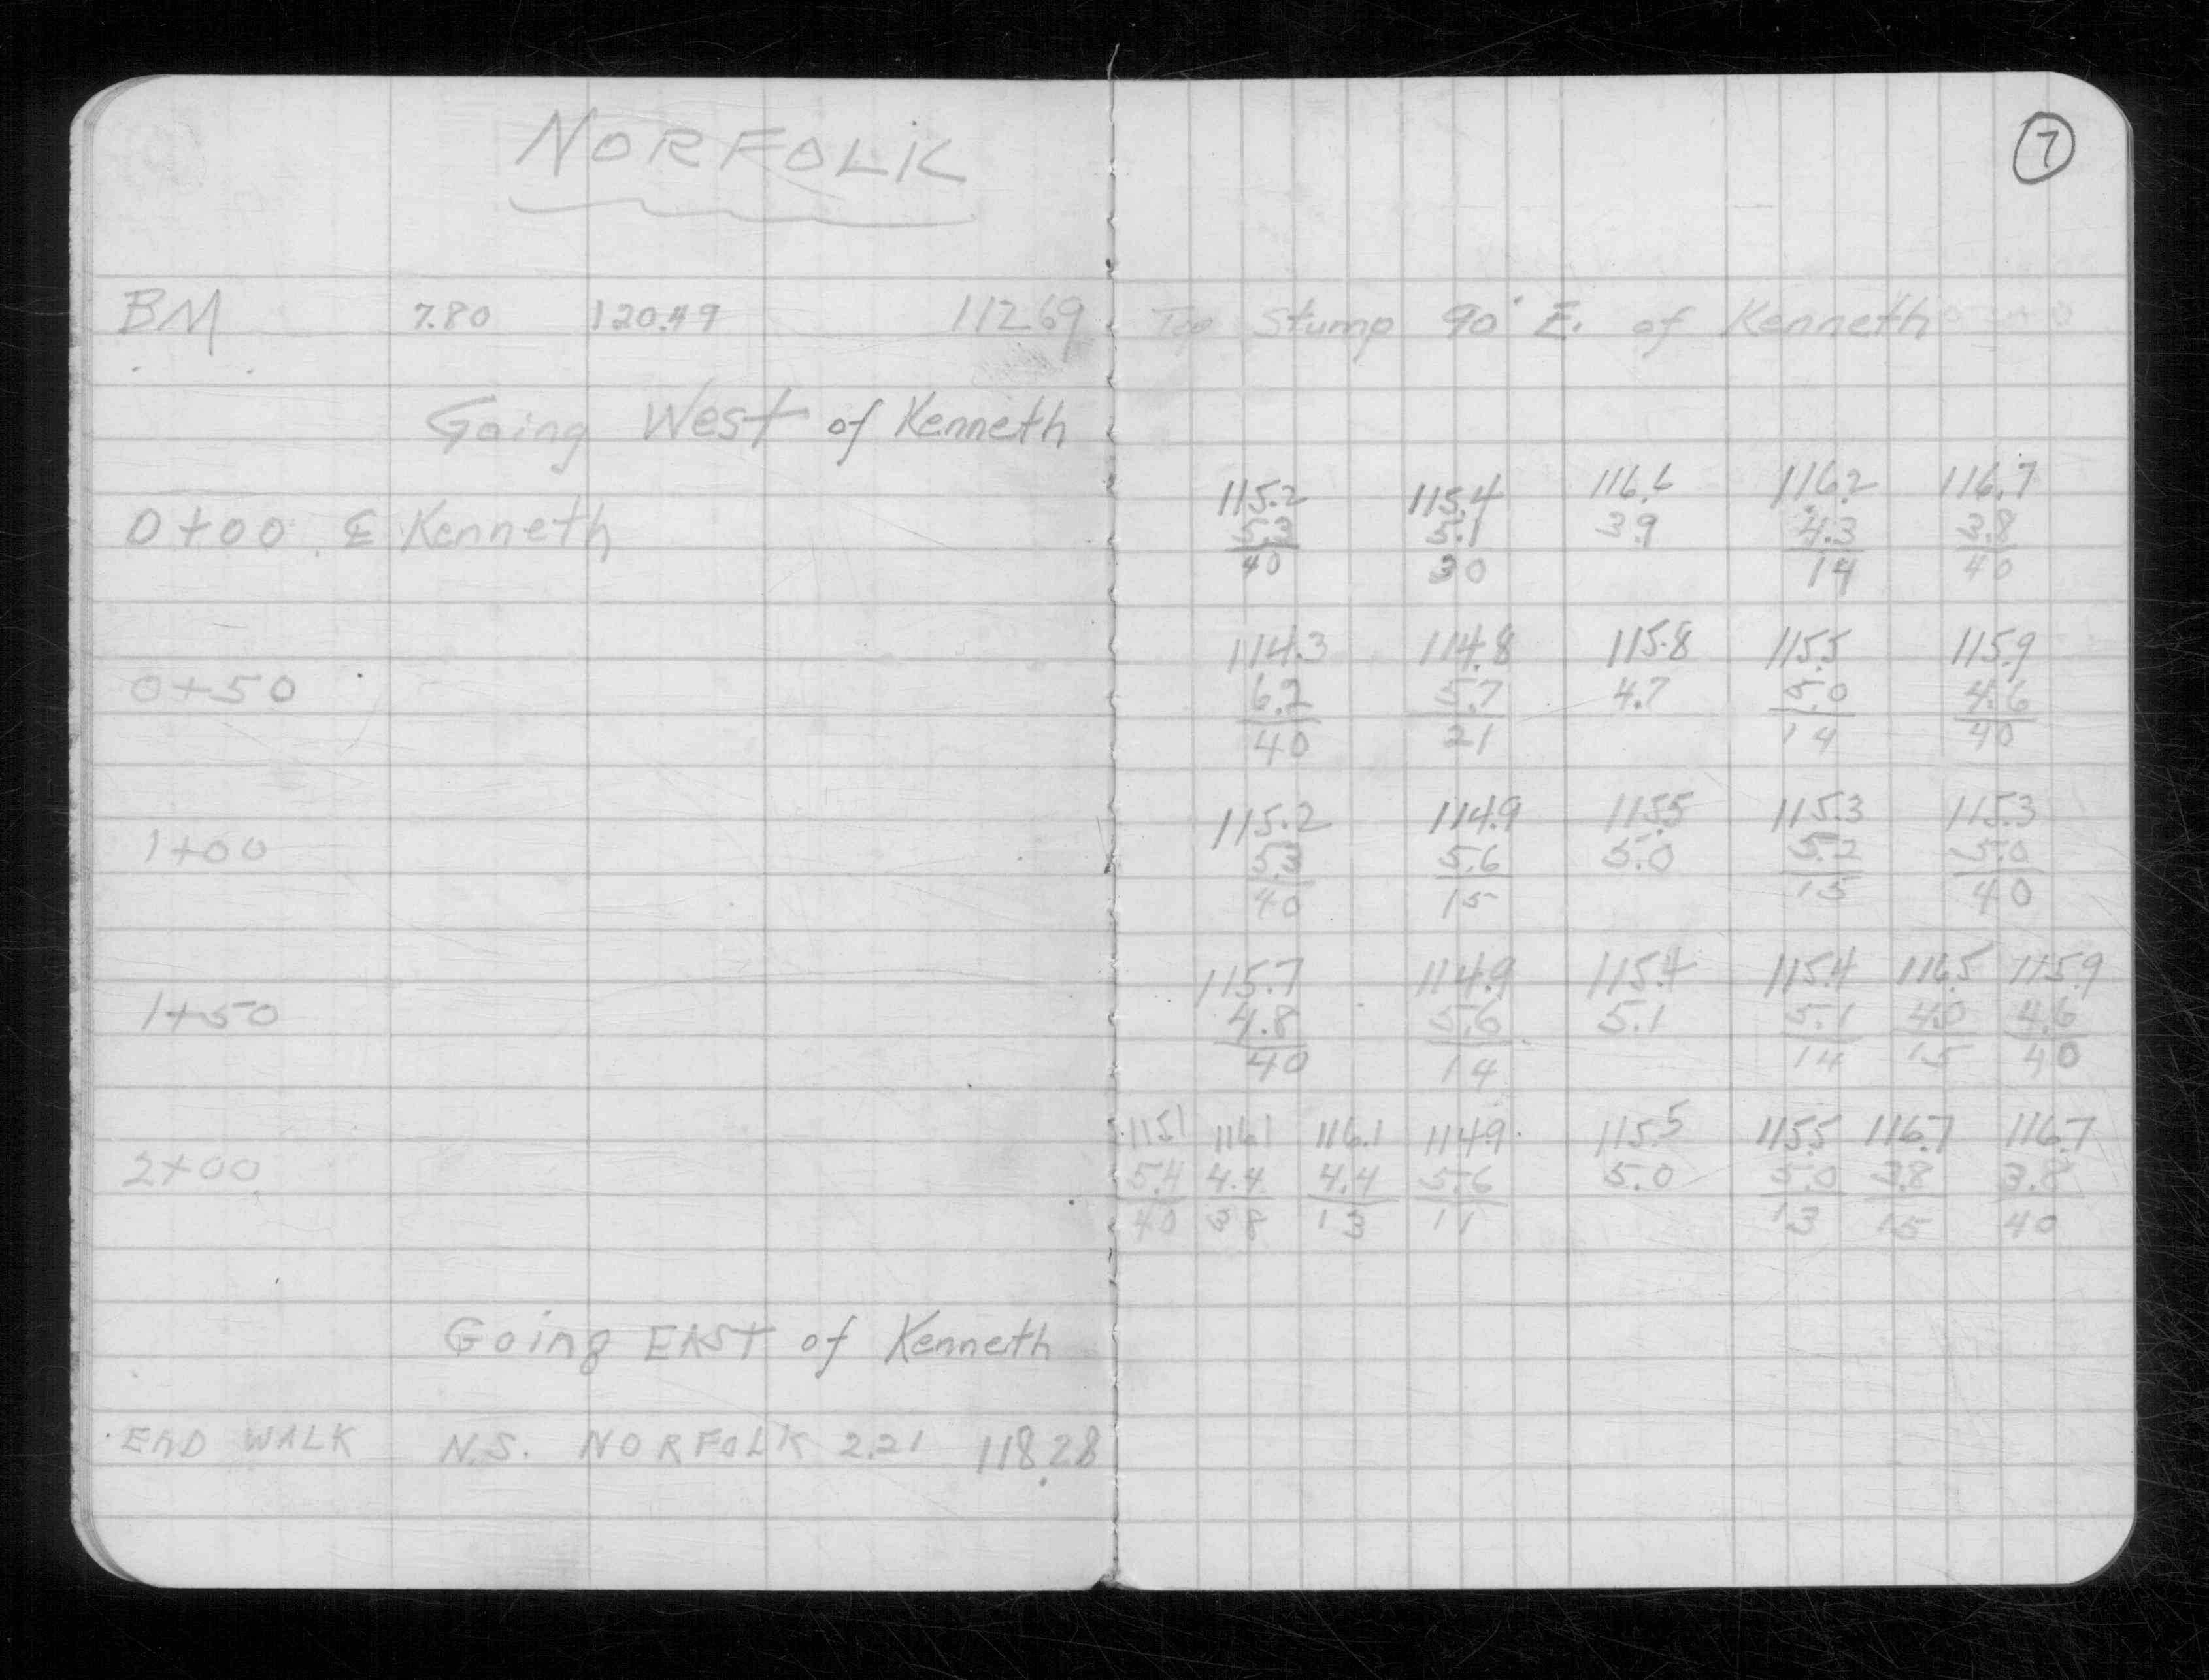 NORFOLK
7
BM 7.80 120.49 112.69 Top Stump 90' E. of Kenneth
Going West of Kenneth
115.2 115.4 116.6 116.2 116.7
0+00 ℄ Kenneth 5.3 5.1 3.9 4.3 3.8
40 30 14 40
114.3 114.8 115.8 115.5 115.9
0+50 6.2 5.7 4.7 5.0 4.6
40 21 14 40
115.2 114.9 115.5 115.3 115.3
1+00 5.3 5.6 5.0 5.2 5.0
40 15 15 40
115.7 114.9 115.4 115.4 116.5 115.9
1+50 4.8 5.6 5.1 5.1 4.0 4.6
40 14 14 15 40
115.1 116.1 116.1 114.9 115.5 115.5 116.7 116.7
2+00 5.4 4.4 4.4 5.6 5.0 5.0 3.8 3.8
40 38 13 11 13 15 40
Going EAST of Kenneth
END WALK N.S. NORFOLK 2.21 118.28